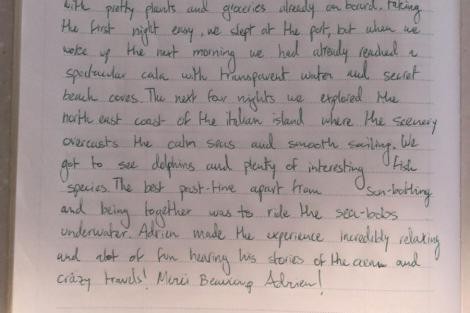 with pretty plants and groceries already on board. Taking
the first night easy, we slept at the port, but when we
woke up the next morning we had already reached a
spectacular cala with transparent water and secret
beach coves. The next few nights we explored the
north east coast of the italian island where the scenery
overcasts the calm seas and smooth sailing. We
got to see dolphins and plenty of interesting fish
species. The best past-time apart from sun-bathing
and being together was to ride the sea-bobs
underwater. Adrien made the experience incredibly relaxing
and alot of fun hearing his stories of the ocean and
crazy travels! Merci Beaucoup Adrien!